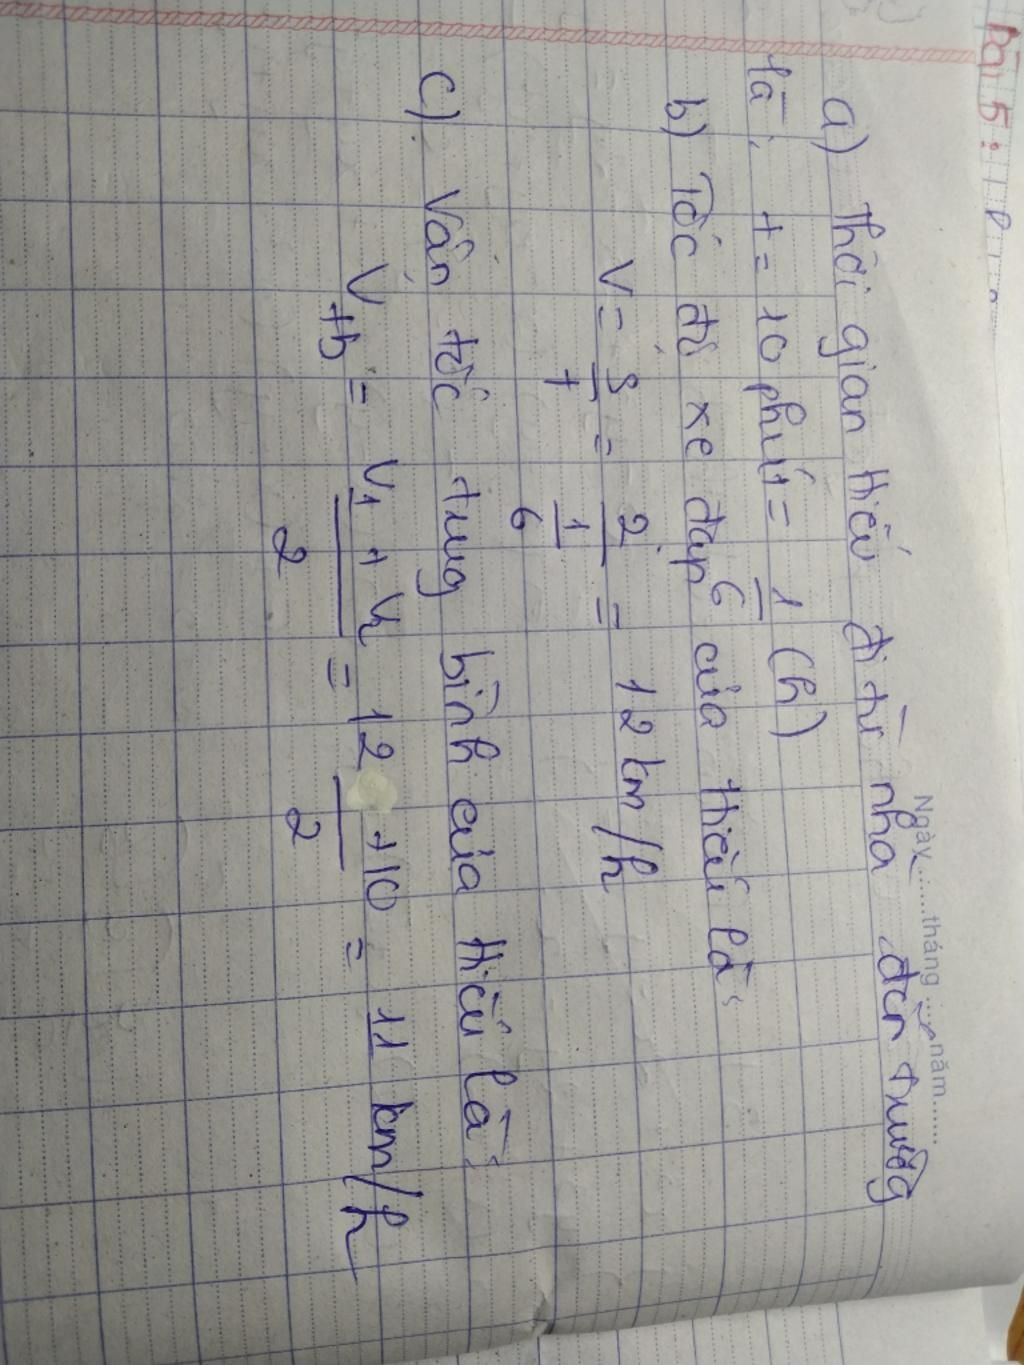 Bài 5:
Ngày......tháng......năm......
a) Thời gian Hiếu đi từ nhà đến trường
là: t = 10 phút = 1/6 (h)
b) Tốc độ xe đạp của Hiếu là:
v = s/t = 2/(1/6) = 12 km/h
c) Vận tốc trung bình của Hiếu là:
Vtb = (V1 + V2)/2 = (12 + 10)/2 = 11 km/h